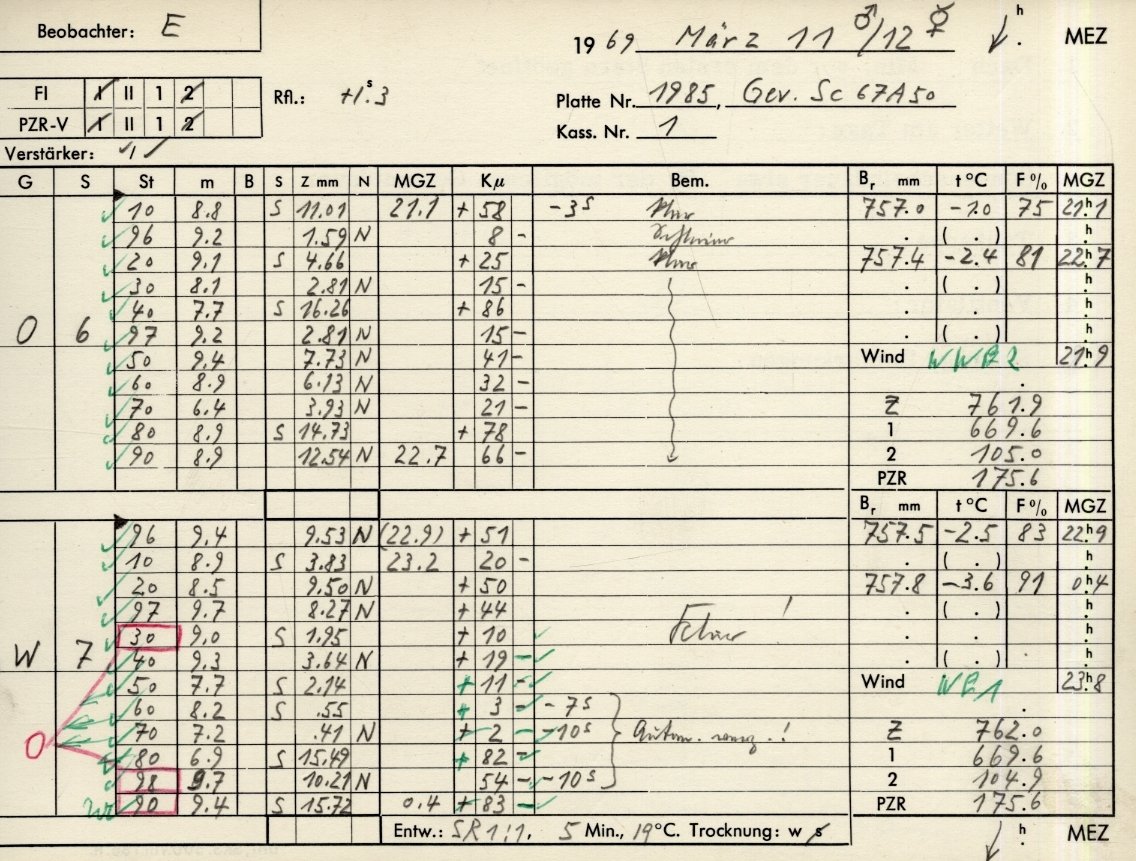 Beobachter: E
19 69 März 11 ♂/12 ☿ h . MEZ
FI I II 1 2
Rfl.: +1.ˢ3
Platte Nr. 1985, Gev. Sc 67A50
PZR-V I II 1 2
Kass. Nr. 1
Verstärker: 1
G S St m B S Z mm N MGZ Kμ Bem. Br mm t°C F% MGZ
10 8.8 S 11.01 21.1 + 58 -3ˢ 757.0 -1.0 75 21ʰ.1
96 9.2 1.59 N 8 - . ( . ) h
20 9.1 S 4.66 + 25 757.4 -2.4 81 22ʰ.7
30 8.1 2.81 N 15 - . ( . ) h
40 7.7 S 16.26 + 86 . . h
O 6 97 9.2 2.81 N 15 - . ( . ) h
50 9.4 7.73 N 41 - Wind WWE2 21ʰ.9
60 8.9 6.13 N 32 -
70 6.4 3.93 N 21 - Z 761.9
80 8.9 S 14.73 + 78 1 669.6
90 8.9 12.54 N 22.7 66 - 2 105.0
PZR 175.6
Br mm t°C F% MGZ
96 9.4 9.53 N (22.9) + 51 757.5 -2.5 83 22ʰ.9
10 8.9 S 3.83 23.2 20 - . ( . ) h
20 8.5 9.50 N + 50 757.8 -3.6 91 0ʰ.4
97 9.7 8.27 N + 44 . ( . ) h
30 9.0 S 1.95 + 10 ! . . h
W 7 40 9.3 3.64 N + 19 - . ( . ) h
50 7.7 S 2.14 + 11 - Wind WE1 23ʰ.8
60 8.2 S .55 + 3 - -7ˢ
O 70 7.2 .41 N + 2 - -10ˢ Autom. ! Z 762.0
80 6.9 S 15.49 + 82 - 1 669.6
98 9.7 10.21 N 54 - -10ˢ 2 104.9
90 9.4 S 15.72 0.4 + 83 - PZR 175.6
Entw.: SR 1:1, 5 Min., 19°C. Trocknung: w s h . MEZ